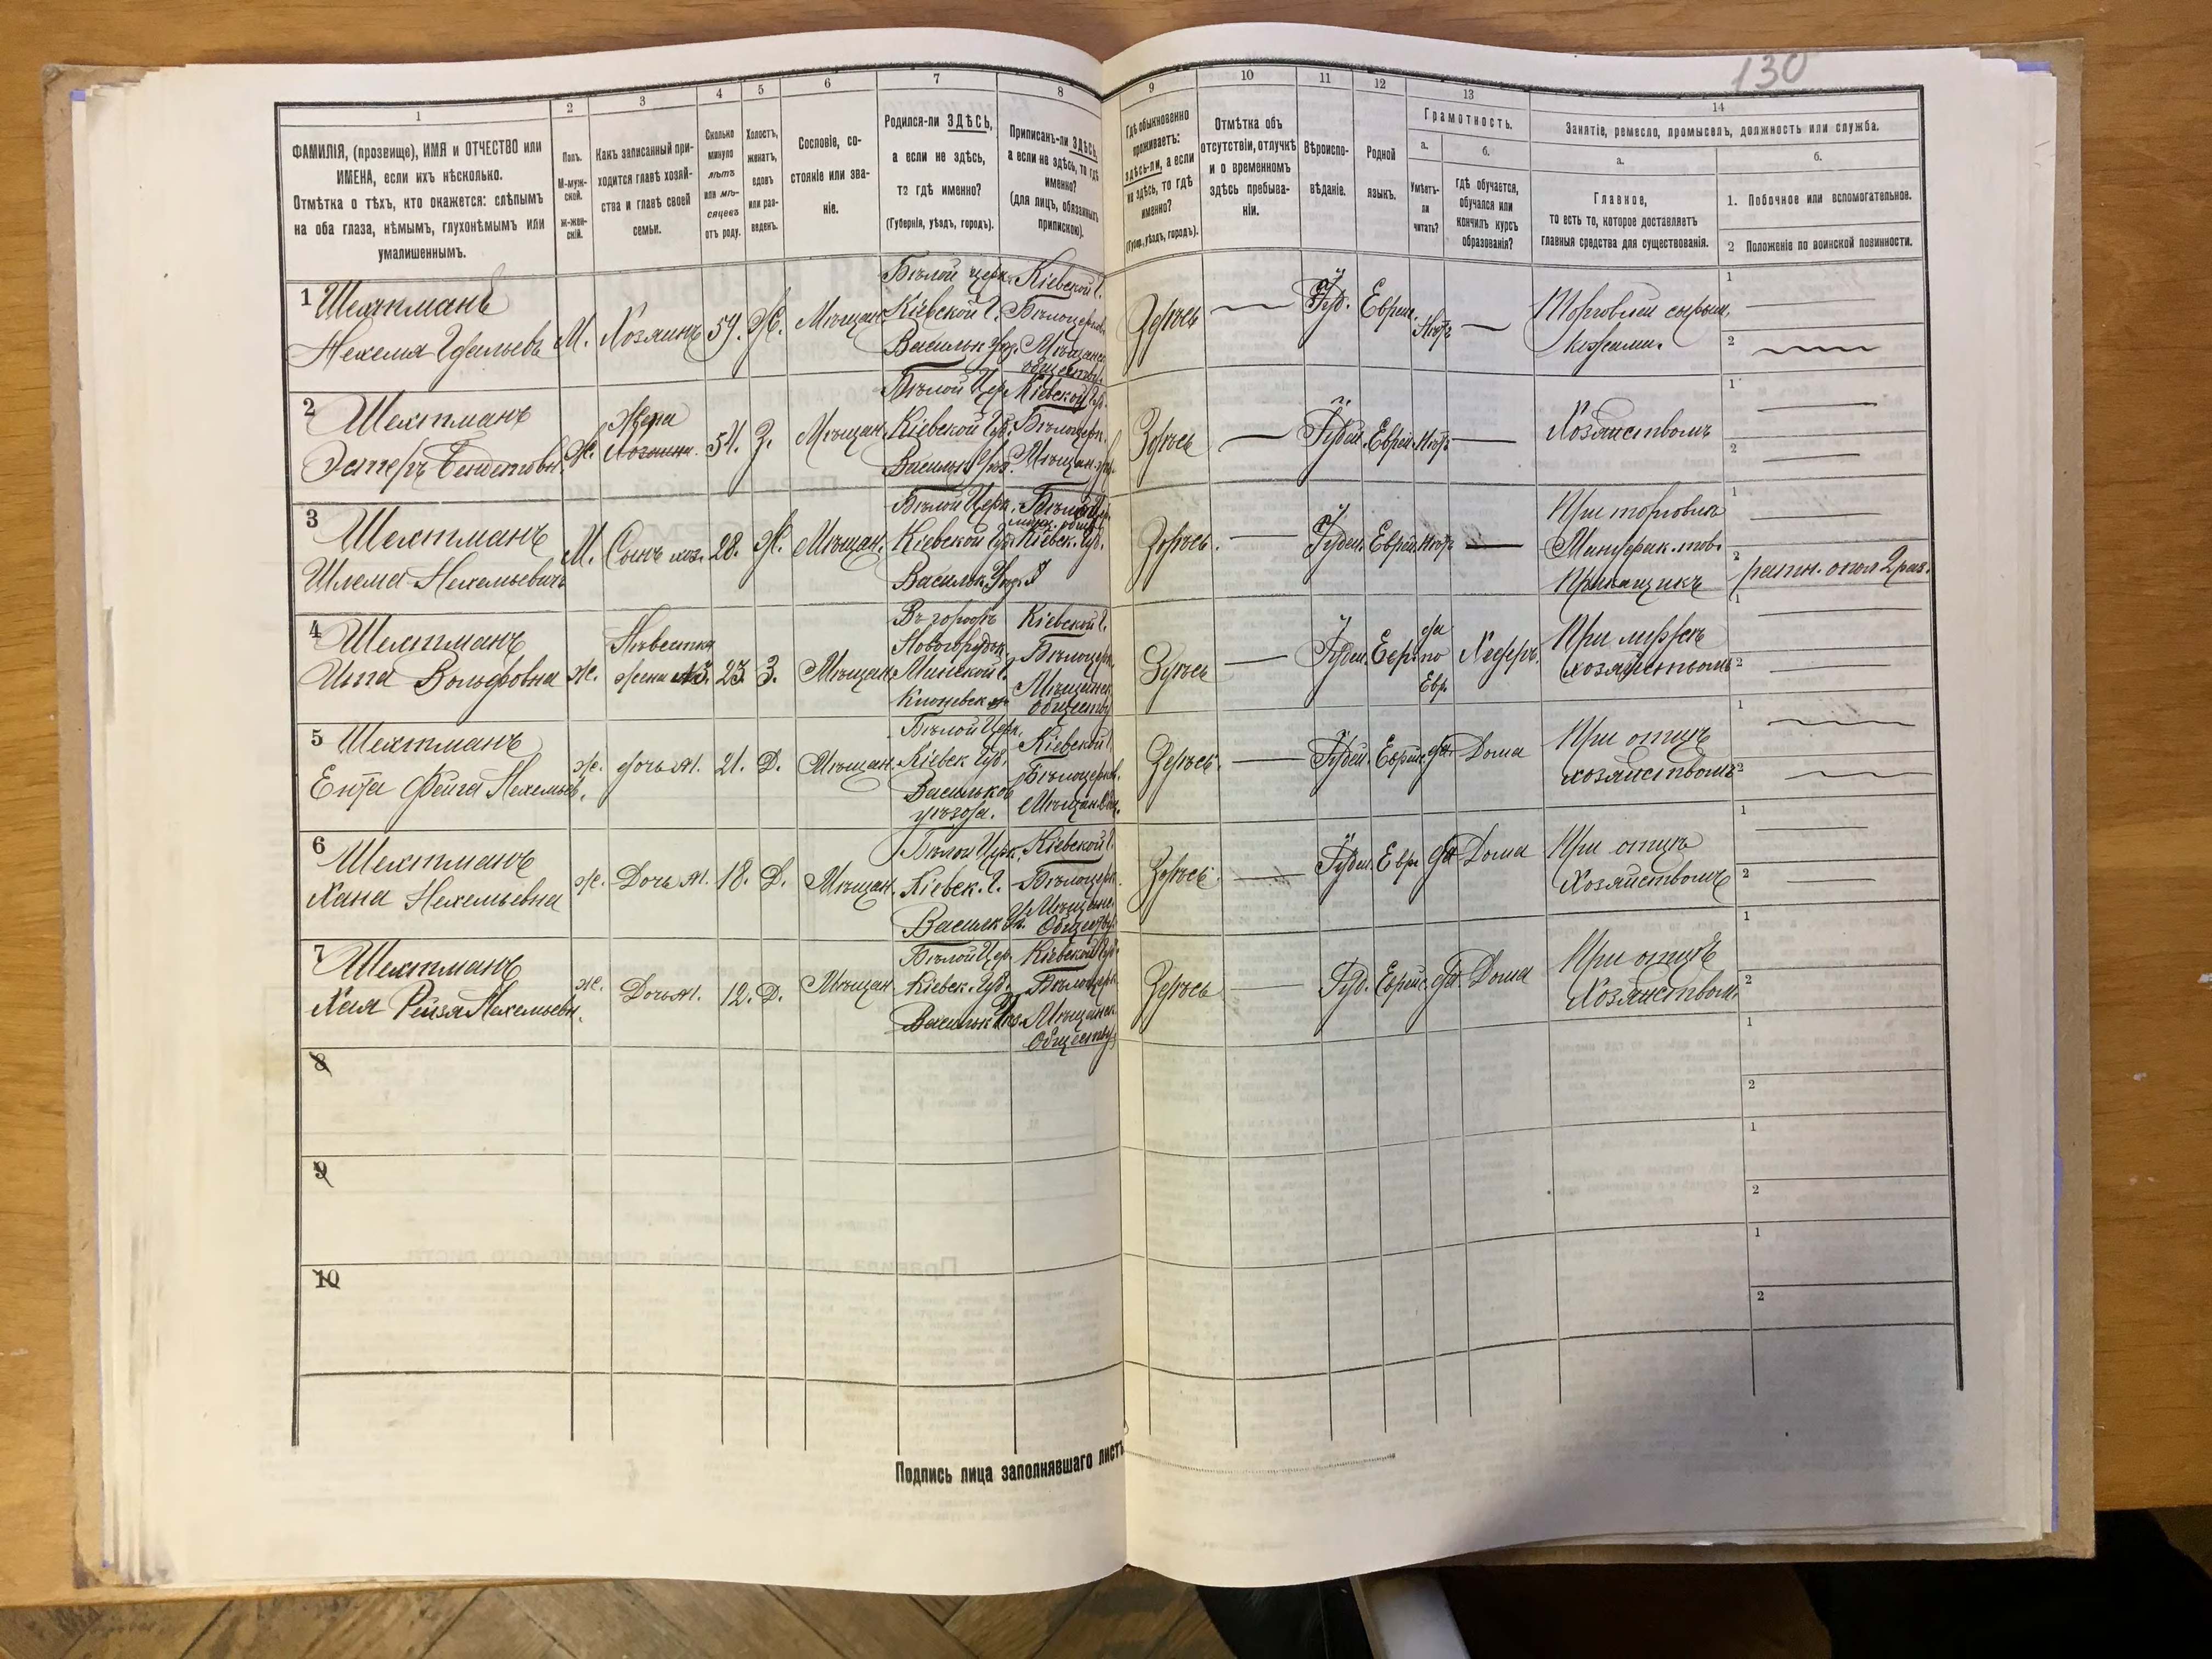 130
1
2
3
4
5
6
7
8
9
10
11
12
13
14
ФАМИЛІЯ, (прозвище), ИМЯ и ОТЧЕСТВО или
ИМЕНА, если ихъ нѣсколько.
Отмѣтка о тѣхъ, кто окажется: слѣпымъ
на оба глаза, нѣмымъ, глухонѣмымъ или
умалишеннымъ.
Полъ.
М-муж-
ской.
Ж-жен-
скій.
Какъ записанный при-
ходится главѣ хозяй-
ства и главѣ своей
семьи.
Сколько
минуло
лѣтъ
или мѣ-
сяцевъ
отъ роду.
Холостъ,
женатъ,
вдовъ
или раз-
веденъ.
Сословіе, со-
стояніе или зва-
ніе.
Родился-ли ЗДѢСЬ,
а если не здѣсь,
то гдѣ именно?
(Губернія, уѣздъ, городъ).
Приписанъ-ли ЗДѢСЬ,
а если не здѣсь, то гдѣ
именно?
(для лицъ, обязанныхъ
припискою).
Гдѣ обыкновенно
проживаетъ:
здѣсь-ли, а если
не здѣсь, то гдѣ
именно?
(Губер., уѣздъ, городъ).
Отмѣтка объ
отсутствіи, отлучкѣ
и о временномъ
здѣсь пребыва-
ніи.
Вѣроиспо-
вѣданіе.
Родной
языкъ.
Грамотность.
а.
Умѣетъ-
ли
читать?
б.
гдѣ обучается,
обучался или
кончилъ курсъ
образованія?
Занятіе, ремесло, промыселъ, должность или служба.
а.
Главное,
то есть то, которое доставляетъ
главныя средства для существованія.
б.
1. Побочное или вспомогательное.
2 Положеніе по воинской повинности.
1 Шехтманъ
Нехемя
М. Хозяинъ 57. Ж. Мѣщан.
Бѣлой церк.
Кіевской Г.
Васильк. Уѣз.
Кіевской Г.
Бѣлоцерков.
Мѣщанск.
обществу.
Здѣсь — Іуд. Еврей. Нѣтъ —
Торговля сырыми
кожами.
1
2
2 Шехтманъ
Эстеръ
Ж. Жена
Хозяина. 54. З. Мѣщан.
Бѣлой Цер.
Кіевской Губ.
Васильк. Уѣз.
Кіевской Губ.
Бѣлоцерк.
Мѣщан.
Здѣсь — Іудей. Еврей. Нѣтъ —
Хозяйствомъ
1
2
3 Шехтманъ
Шлема Нехемьевичъ
М. Сынъ хоз. 28. Ж. Мѣщан.
Бѣлой Церк.
Кіевской Губ.
Васильк. Уѣз.
Кіевск. Губ.
Здѣсь. — Іудей. Еврей. Нѣтъ —
При торговлѣ
Мануфак. тов.
Прикащикъ
1
2
4 Шехтманъ
Вольфовна
Ж. Невѣстка
жена №3. 23. З. Мѣщан.
Въ городѣ
Минской Г.
Кіевской Г.
Бѣлоцерк.
Мѣщанск.
обществу
Здѣсь — Іудей. Евр. да
по
Евр. Хедеръ.
При мужѣ
хозяйствомъ
1
2
5 Шехтманъ
Ента Фейга Нехемьев.
Ж. дочь №1. 21. Д. Мѣщан.
Бѣлой Церк.
Кіевск. Губ.
Васильков.
уѣзда.
Кіевской Г.
Бѣлоцерков.
Мѣщан. Общ.
Здѣсь. — Іудей. Еврейс. да Дома
При отцѣ
хозяйствомъ
1
2
6 Шехтманъ
Хана Нехемьевна
Ж. Дочь №1. 18. Д. Мѣщан.
Бѣлой Церк.
Кіевск. Г.
Васильк. Уѣ.
Кіевской Г.
Бѣлоцерк.
Мѣщанс.
Обществу.
Здѣсь. — Іудей. Евр. да Дома
При отцѣ
Хозяйствомъ
1
2
7 Шехтманъ
Хая Рейзя Нехемьевн.
Ж. Дочь №1. 12. Д. Мѣщан.
Бѣлой Цер.
Кіевск. Губ.
Васильк. Уѣз.
Кіевской Губ.
Бѣлоцерк.
Мѣщанск.
Обществу
Здѣсь — Іуд. Еврейс. да Дома
При отцѣ
Хозяйствомъ
1
2
8
1
2
9
1
2
10
1
2
Подпись лица заполнявшаго листъ